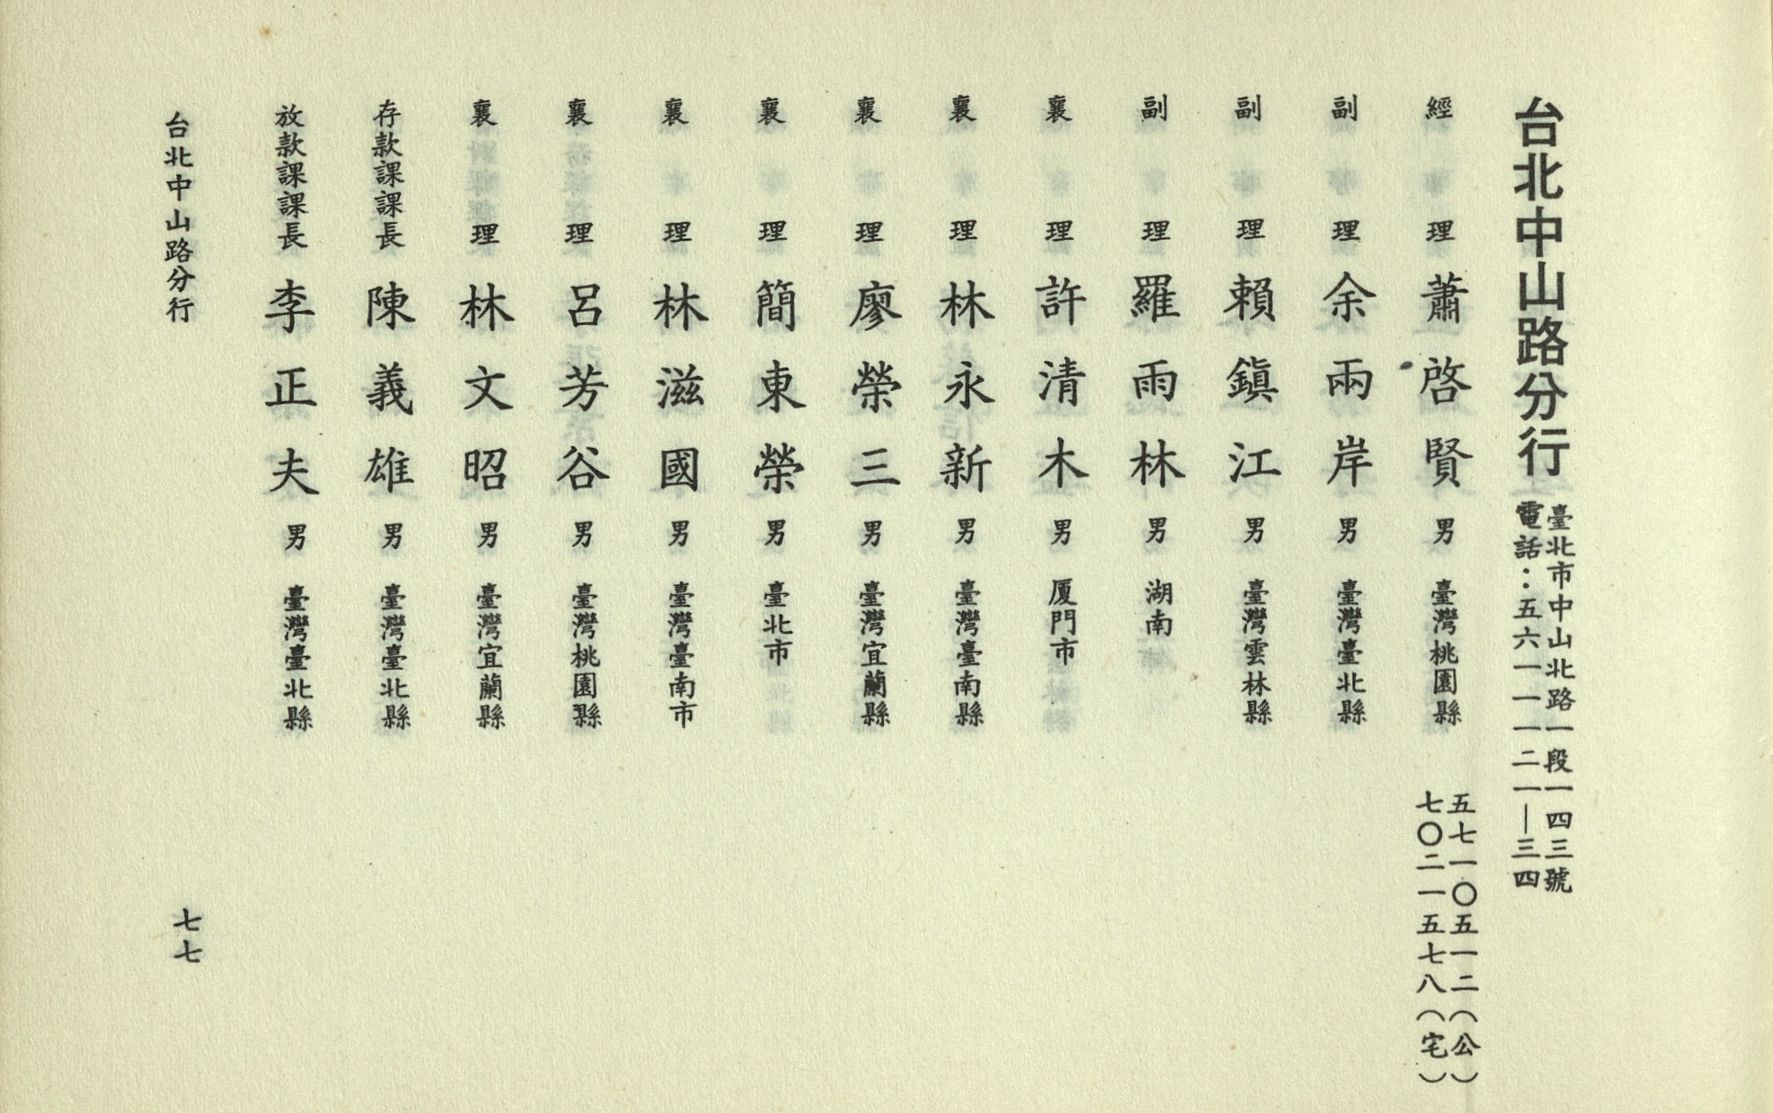 台北中山路分行
臺北市中山北路一段一四三號
電話：五六一一一二一—三四
經理 蕭啓賢 男 臺灣桃園縣
五七一〇五一二（公）
七〇二一五七八（宅）
副理 余兩岸 男 臺灣臺北縣
副理 賴鎭江 男 臺灣雲林縣
副理 羅雨林 男 湖南
襄理 許清木 男 厦門市
襄理 林永新 男 臺灣臺南縣
襄理 廖榮三 男 臺灣宜蘭縣
襄理 簡東榮 男 臺北市
襄理 林滋國 男 臺灣臺南市
襄理 呂芳谷 男 臺灣桃園縣
襄理 林文昭 男 臺灣宜蘭縣
存款課課長 陳義雄 男 臺灣臺北縣
放款課課長 李正夫 男 臺灣臺北縣
台北中山路分行
七七